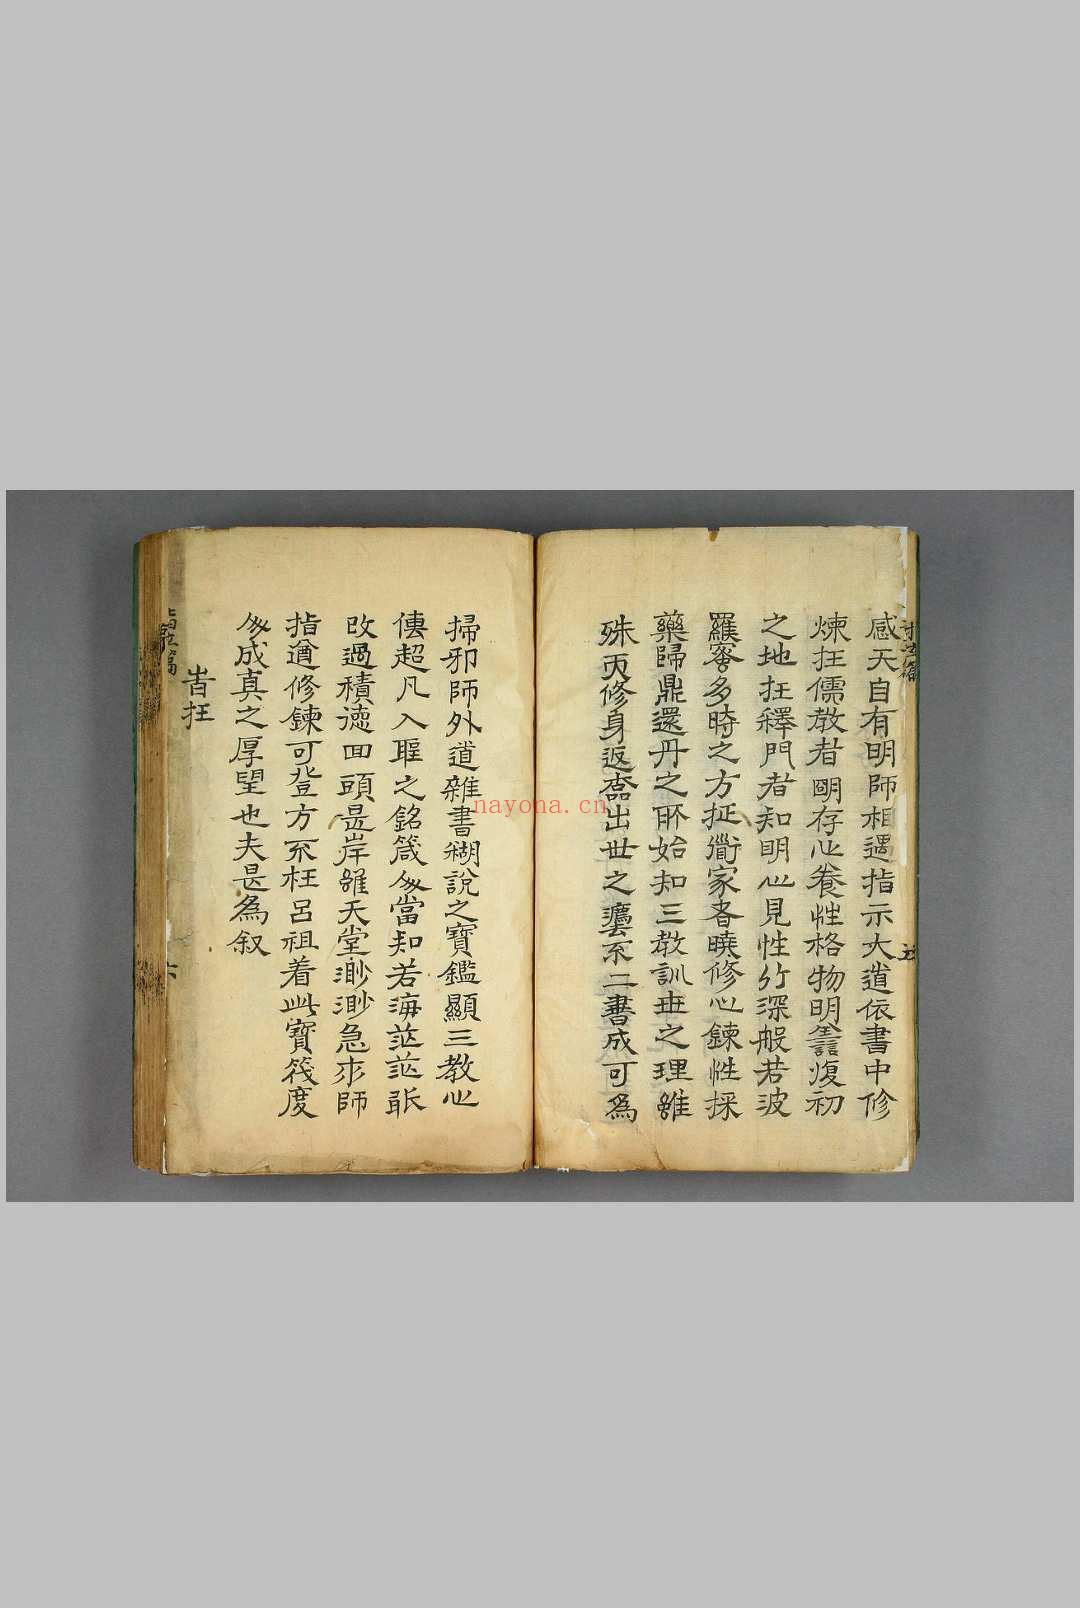 感天自有明師相遇指示大道依書中修
煉在儒教者明存心養性格物明善復初
之地在釋門者知明心見性行深般若波
羅蜜多時之方在衜家者曉修心鍊性採
藥歸鼎還丹之所始知三教訓世之理雖
殊而修身返本出世之慶不二書成可為
掃邪師外道雜書糊說之寶鑑顯三教心
傳超凡入聖之銘箴 當知若海茫茫
改過積德回頭是岸雖天堂渺渺急求師
指遒修鍊可登方不枉呂祖着此寶筏度
成真之厚望也夫是為叙
旹在
指
篇
六
五
nayona.cn